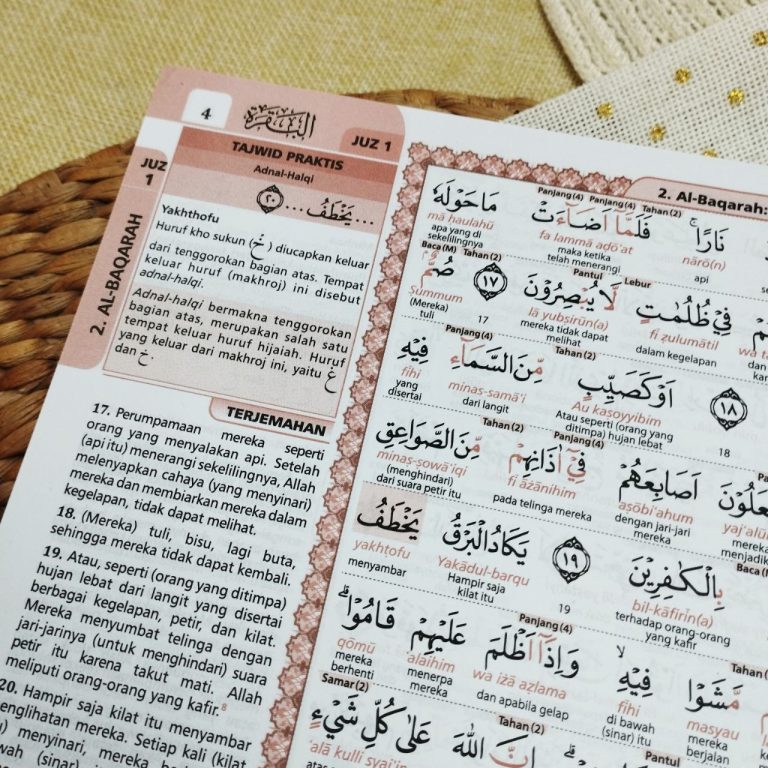 4
البقرة
JUZ 1
JUZ
1
2. AL-BAQARAH
TAJWID PRAKTIS
Adnal-Halqi
... يَخْطَفُ ... ٢٠
Yakhthofu
Huruf kho sukun (خْ) diucapkan keluar
dari tenggorokan bagian atas. Tempat
keluar huruf (makhroj) ini disebut
adnal-halqi.
Adnal-halqi bermakna tenggorokan
bagian atas, merupakan salah satu
tempat keluar huruf hijaiah. Huruf
yang keluar dari makhroj ini, yaitu غ
dan خ.
TERJEMAHAN
17. Perumpamaan mereka seperti
orang yang menyalakan api. Setelah
(api itu) menerangi sekelilingnya, Allah
melenyapkan cahaya (yang menyinari)
mereka dan membiarkan mereka dalam
kegelapan, tidak dapat melihat.
18. (Mereka) tuli, bisu, lagi buta,
sehingga mereka tidak dapat kembali.
19. Atau, seperti (orang yang ditimpa)
hujan lebat dari langit yang disertai
berbagai kegelapan, petir, dan kilat.
Mereka menyumbat telinga dengan
jari-jarinya (untuk menghindari) suara
petir itu karena takut mati. Allah
meliputi orang-orang yang kafir.8
20. Hampir saja kilat itu menyambar
penglihatan mereka. Setiap kali (kilat
menyinari, mereka
(sinar)
2. Al-Baqarah:
Panjang(4) Panjang(4) Tahan(2)
نَارًاۚ فَلَمَّآ اَضَاۤءَتْ مَا حَوْلَهٗ
nārō(n) fa lammā adō'at mā ḥaulahū
api maka ketika telah menerangi apa yang di sekelilingnya
Pantul Lebur Baca(M) Tahan(2)
فِيْ ظُلُمٰتٍ لَّا يُبْصِرُوْنَ ١٧ صُمٌّ
fī ẓulumātil lā yubṣirūn(a) Ṣummum
dalam kegelapan mereka tidak dapat melihat 17 (Mereka) tuli
Tahan(2) Panjang(4)
١٨ اَوْ كَصَيِّبٍ مِّنَ السَّمَاۤءِ فِيْهِ
Au kaṣoyyibim minas-samā'i fīhi
18 Atau seperti (orang yang ditimpa) hujan lebat dari langit yang disertai
Panjang(4) Tahan(2)
اَصَابِعَهُمْ فِيْٓ اٰذَانِهِمْ مِّنَ الصَّوَاعِقِ
aṣōbi'ahum fī āżānihim minaṣ-ṣowā'iqi
mereka dengan jari-jari mereka pada telinga mereka (menghindari) dari suara petir itu
بِالْكٰفِرِيْنَ ١٩ يَكَادُ الْبَرْقُ يَخْطَفُ
bil-kāfirīn(a) Yakādul-barqu yakhṭofu
terhadap orang-orang yang kafir 19 Hampir saja kilat itu menyambar
Panjang(4)
مَّشَوْا فِيْهِ ۙ وَاِذَآ اَظْلَمَ عَلَيْهِمْ قَامُوْا ۗ
masyau fīhi wa iżā aẓlama 'alaihim qōmū
mereka berjalan di bawah (sinar) itu dan apabila gelap menerpa mereka mereka berhenti
Pantul Tahan(2) Samar(2)
اِنَّ اللّٰهَ عَلٰى كُلِّ شَيْءٍ
'alā kulli syai'in